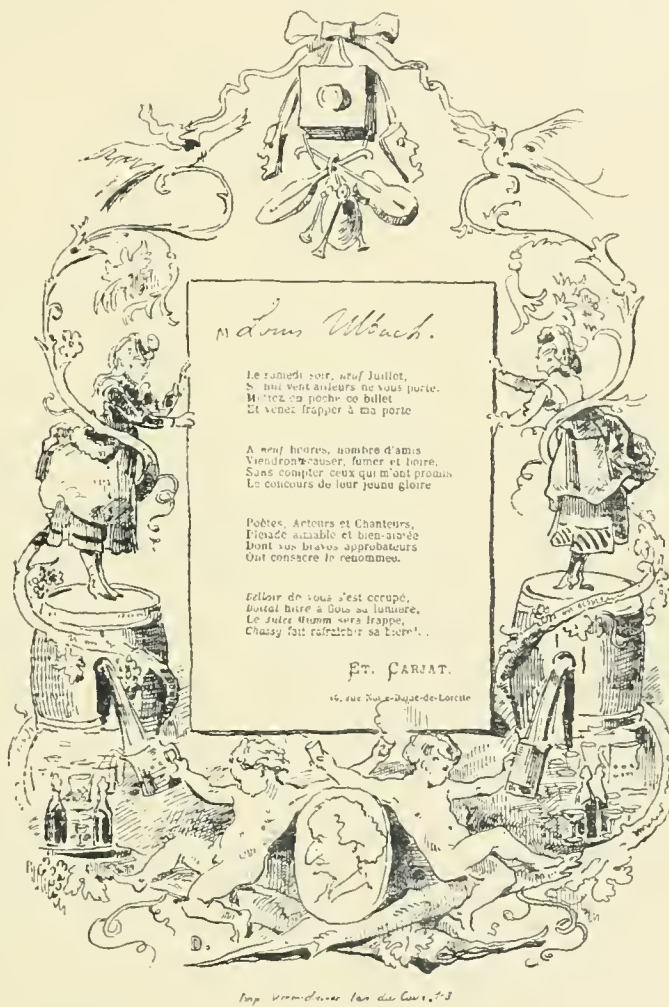 M Louis Ulbach.
Le samedi soir, neuf Juillet,
Si nul vent ailleurs ne vous porte.
Mettez en poche ce billet
Et venez frapper à ma porte
A neuf heures, nombre d'amis
Viendront causer, fumer et boire,
Sans compter ceux qui m'ont promis
Le concours de leur jeune gloire
Poètes, Acteurs et Chanteurs,
Pléiade aimable et bien-aimée
Dont vos bravos approbateurs
Ont consacré le renommée.
Belloir de vous s'est occupé,
à flots sa lumière,
Le Jules Mumm sera frappé,
Chassy fait rafraîchir sa bière!..
ET. CARJAT.
rue Notre-Dame-de-Lorette
D.
Imp